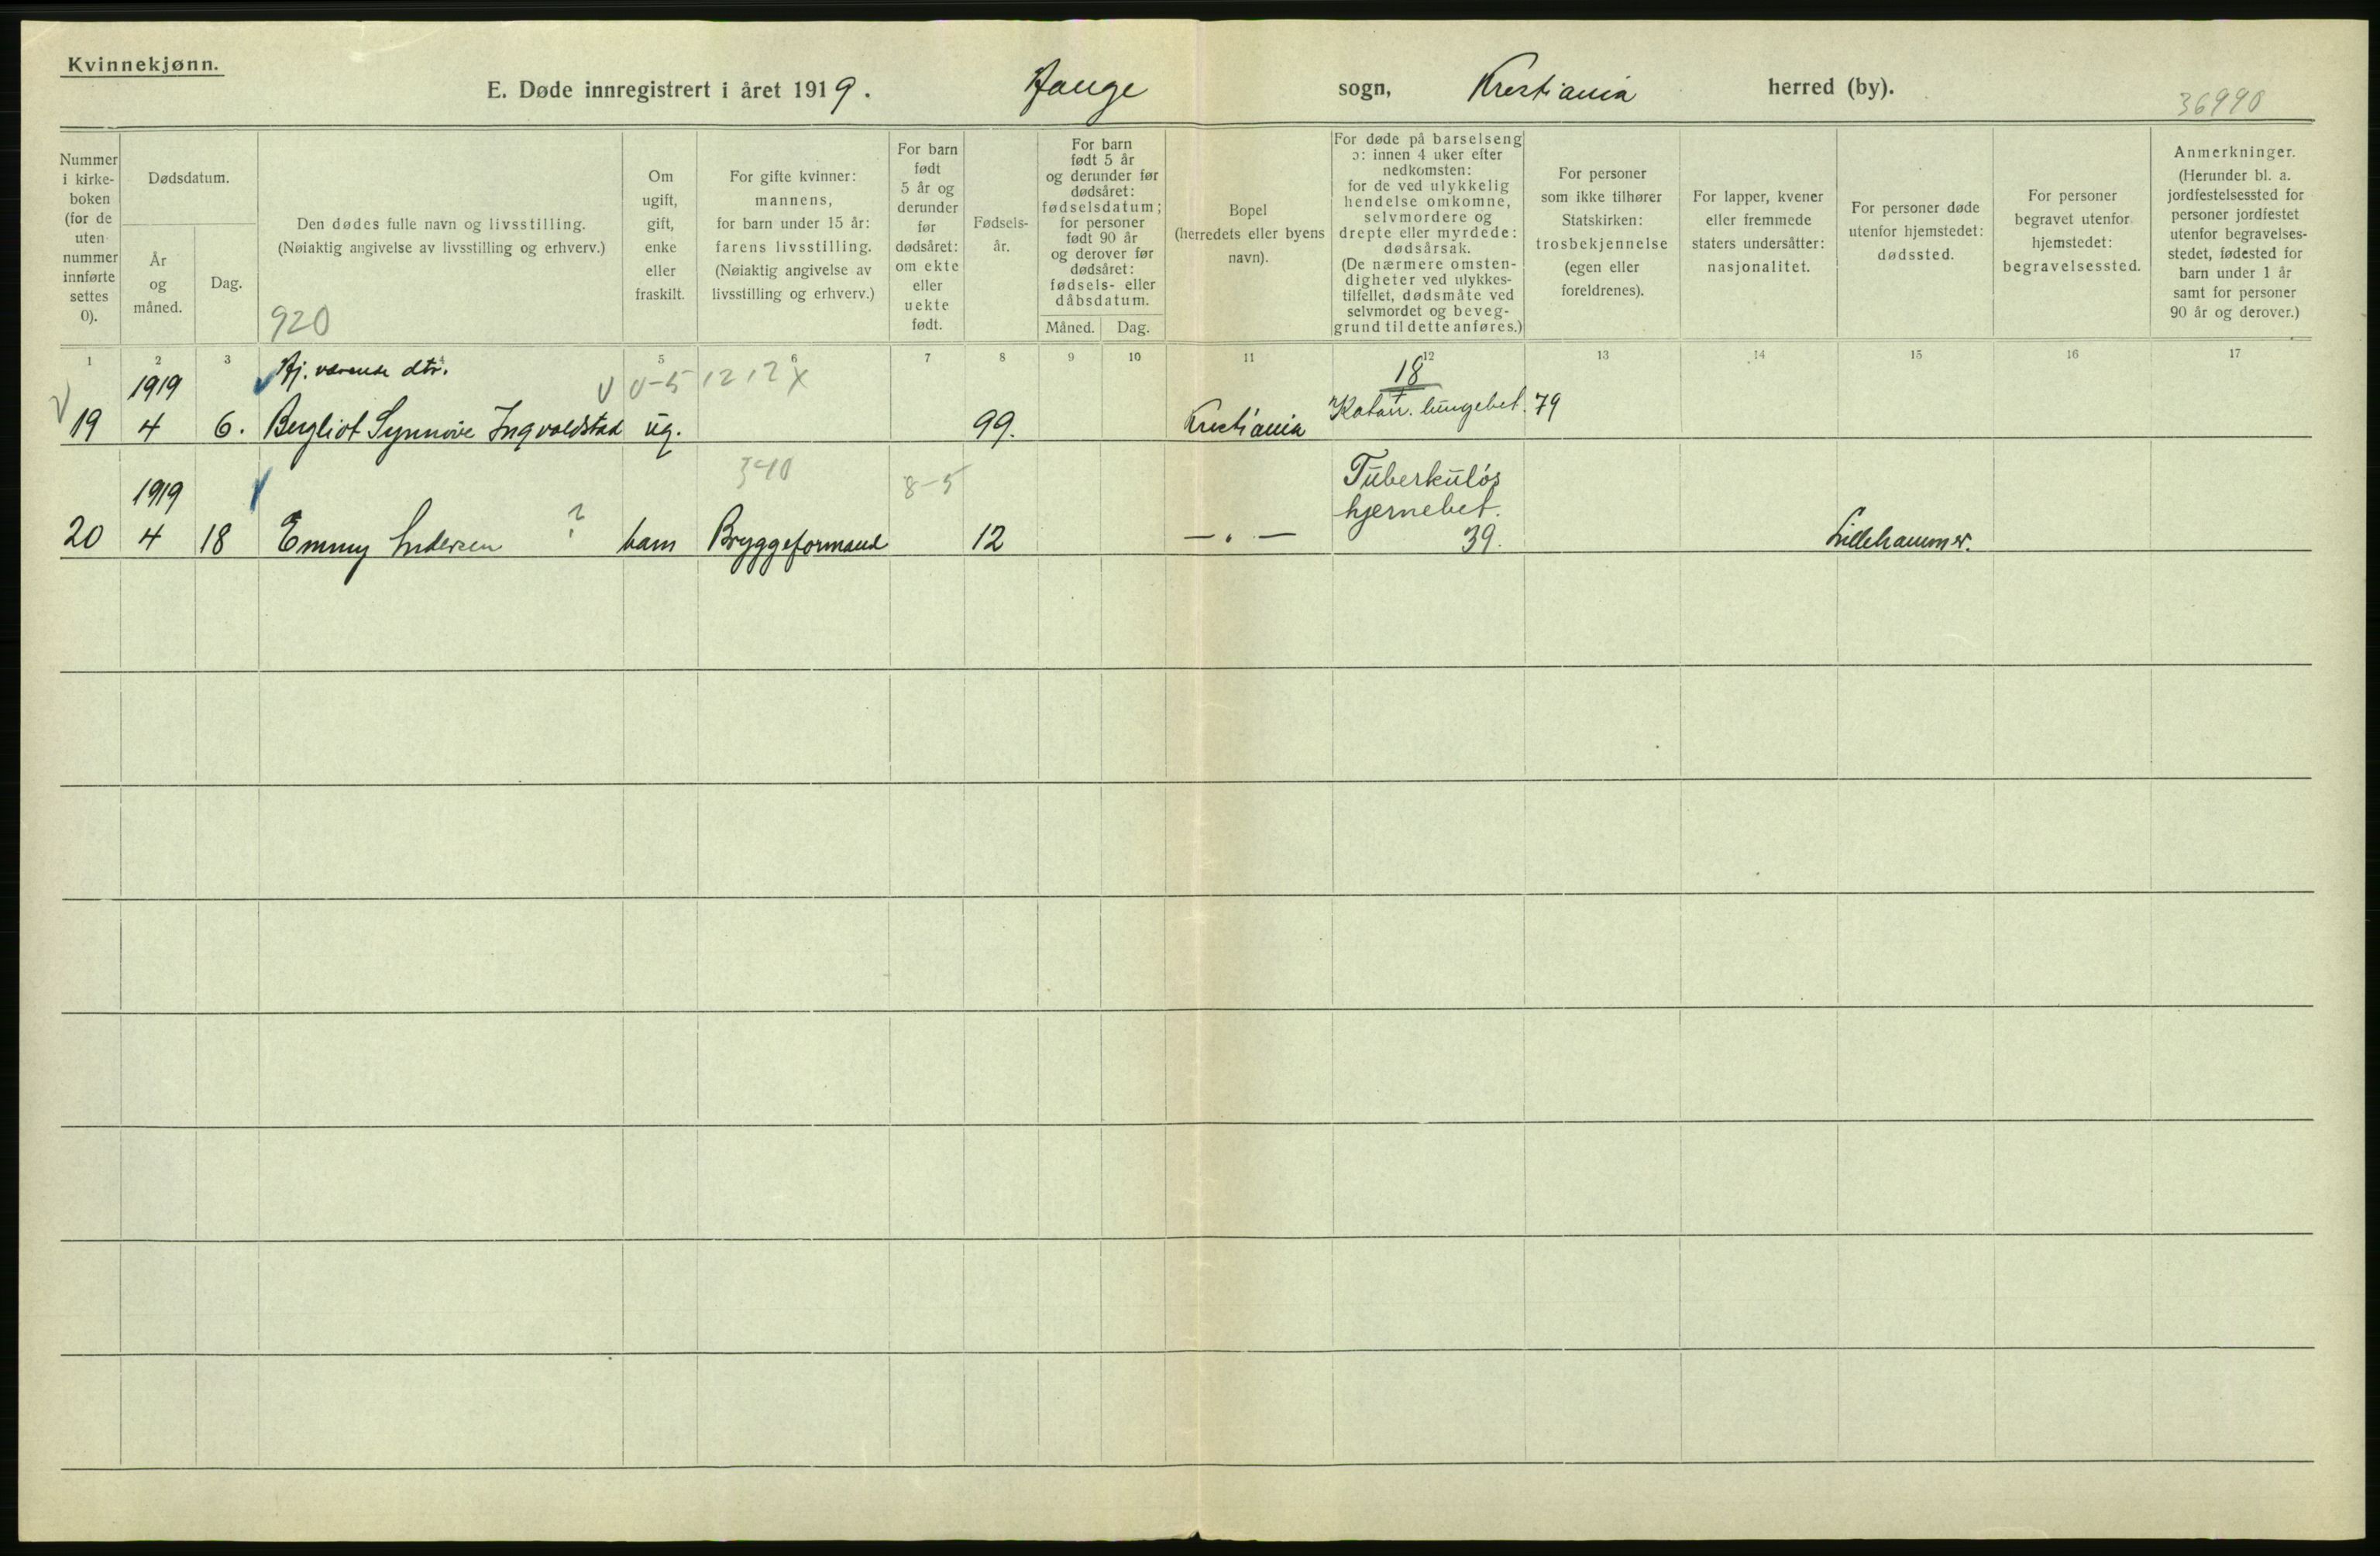 Kvinnekjønn.
E. Døde innregistrert i året 1919. Hauge sogn, Kristiania herred (by).
36990
Nummer
i kirke-
boken
(for de
uten
nummer
innførte
settes
0).
Dødsdatum.
År
og
måned.
Dag.
Den dødes fulle navn og livsstilling.
(Nøiaktig angivelse av livsstilling og erhverv.)
920
Om
ugift,
gift,
enke
eller
fraskilt.
For gifte kvinner:
mannens,
for barn under 15 år:
farens livsstilling.
(Nøiaktig angivelse av
livsstilling og erhverv.)
For barn
født
5 år og
derunder
før
dødsåret:
om ekte
eller
uekte
født.
Fødsels-
år.
For barn
født 5 år
og derunder før
dødsåret:
fødselsdatum;
for personer
født 90 år
og derover før
dødsåret:
fødsels- eller
dåbsdatum.
Måned. Dag.
Bopel
(herredets eller byens
navn).
For døde på barselseng
ɔ: innen 4 uker efter
nedkomsten:
for de ved ulykkelig
hendelse omkomne,
selvmordere og
drepte eller myrdede:
dødsårsak.
(De nærmere omsten-
digheter ved ulykkes-
tilfellet, dødsmåte ved
selvmordet og beveg-
grund til dette anføres.)
For personer
som ikke tilhører
Statskirken:
trosbekjennelse
(egen eller
foreldrenes).
For lapper, kvener
eller fremmede
staters undersåtter:
nasjonalitet.
For personer døde
utenfor hjemstedet:
dødssted.
For personer
begravet utenfor
hjemstedet:
begravelsessted.
Anmerkninger.
(Herunder bl. a.
jordfestelsessted for
personer jordfestet
utenfor begravelses-
stedet, fødested for
barn under 1 år
samt for personer
90 år og derover.)
1 2 3 4 5 6 7 8 9 10 11 12 13 14 15 16 17
1919 Hj. værende dtr. 0-5 1212 X 18
19 4 6. Bergliot Synnøve Ingvoldstad ug. 99. Kristiania Katarr. lungebet. 79
1919 340 8-5 Tuberkuløs
hjernebet.
20 4 18 Emmy Andersen ? barn Bryggeformand 12 — " — 39. Lillehammer.